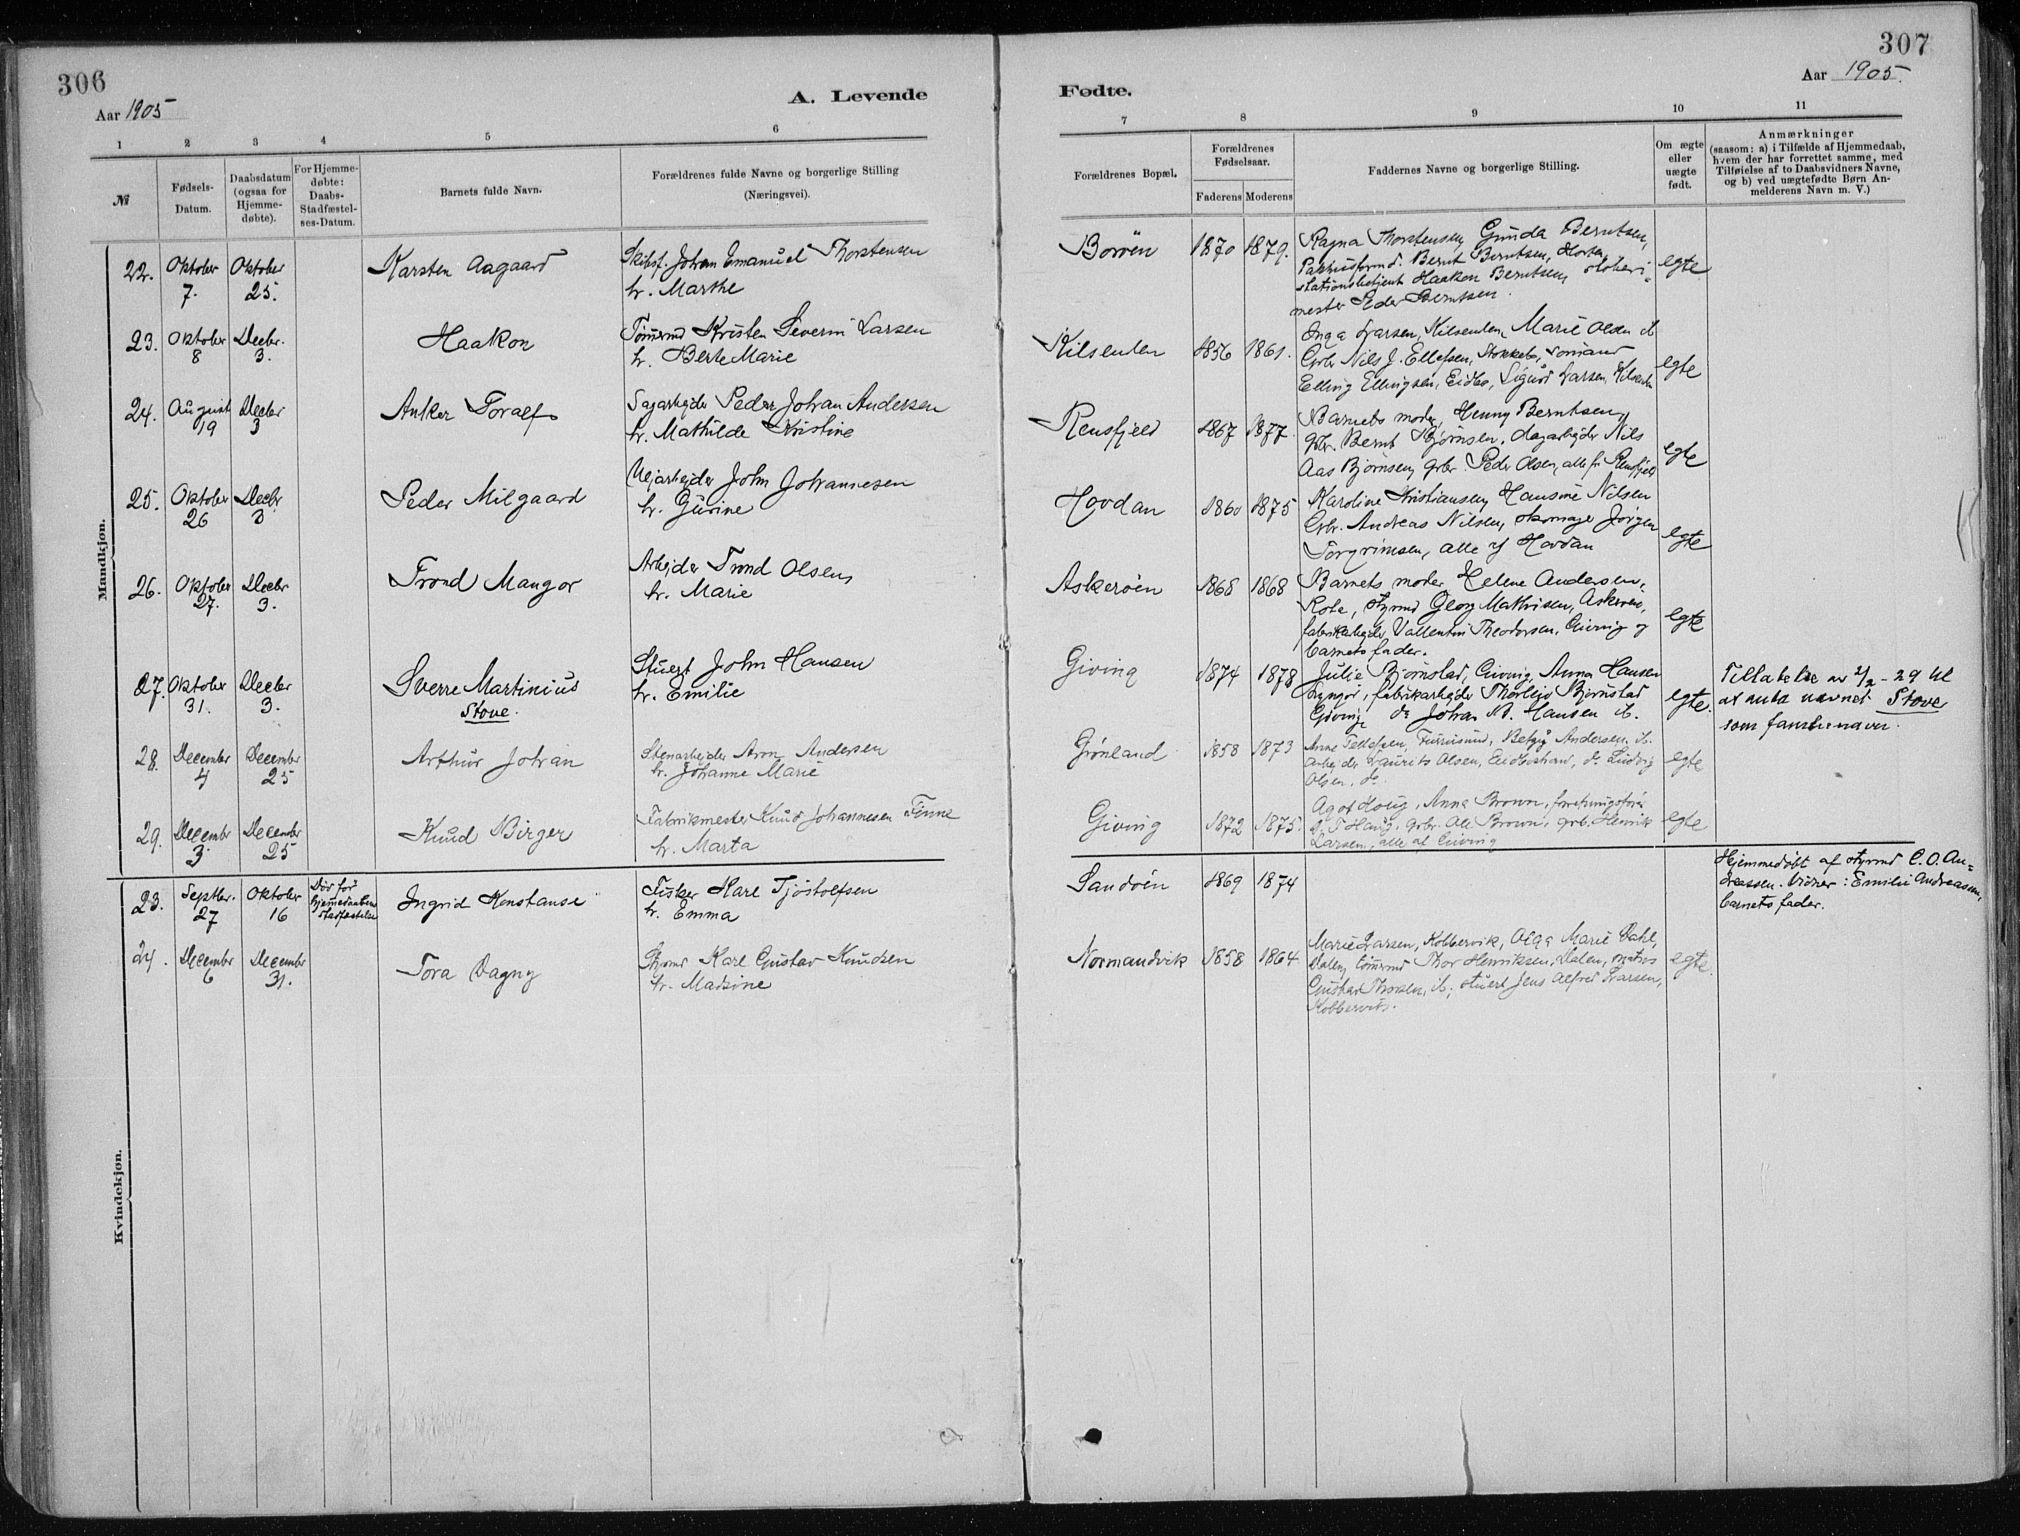 306
Aar 1905
A. Levende
1 2 3 4 5 6
№
Fødsels-Datum.
Daabsdatum (ogsaa for Hjemme-døbte).
For Hjemme-døbte: Daabs-Stadfæstel-ses-Datum.
Barnets fulde Navn.
Forældrenes fulde Navne og borgerlige Stilling
(Næringsvei).
Mandkjøn.
22. Oktober 7. Oktober 25. Karsten Aagaard
Johan Emanuel Thorstensen
h. Marthe
23. Oktober 8 Decbr. 3. Haakon
Tømmrmd Kristen Severin Larsen
h. Berte Marie
24. August 19 Decbr 3 Anker Toralf
Sagarbejder Peder Johan Andersen
h. Mathilde Kristine
25. Oktober 26 Decbr 3 Peder Milgaard
John Johannesen
h. Gurine
26. Oktober 27. Decbr 3. Trond Mangor
Arbejder Trond Olsen
h. Marie
27. Oktober 31. Decbr 3. Sverre Martinius
Stove.
Stuert John Hansen
h. Emilie
28. December 4 December 25 Arthur Johan
Stenarbejder Aron Andersen
h. Johanne Marie
29. Decembr 3 Decembr 25 Knud Birger
Fabrikmester Knud Johannesen Finne
h. Marta
Kvindekjøn.
23. Septbr. 27 Oktober 16 Død før hjemmedaabens stadfæstelse Ingrid Konstanse
Fisker Karl Tjøstolfsen
h. Emma
24. Decembr 6 Decembr 31. Tora Dagny
Styrmd Karl Gustav Knudsen
h. Madsine
307
Aar 1905.
Fødte.
7 8 9 10 11
Forældrenes Bopæl.
Forældrenes Fødselsaar.
Faderens Moderens
Faddernes Navne og borgerlige Stilling.
Om ægte eller uægte født.
Anmærkninger
(saasom: a) i Tilfælde af Hjemmedaab,
hvem der har forrettet samme, med
Tilføielse af to Daabsvidners Navne,
og b) ved uægtefødte Børn An-
melderens Navn m. V.)
Borøen 1870 1879. Ragna Thorstensen, Gunda Berntsen,
Pakhusformd. Bernt Berntsen, Horten,
stationsbetjent Haakon Berntsen,
mester Peder Berntsen.
egte
Kilsenden 1856 1861. Inga Larsen, Kilsenden, Marie Olsen
Grbr Nils J. Ellefsen, Stokkebo, sømand
Elling Ellingsen, Eidbo, Sigurd Larsen, Kilsenden
egte
Rensfjeld 1867 1877 Barnets moder, Henny Berntsen,
grbr. Bernt Bjørnsen, dagarbejder Nils
Aas Bjørnsen, grbr. Peder Olsen, alle fr Rensfjeld
egte
Hovdan 1860 1875 Karoline Kristiansen, Hansine Nilsen
Grbr. Andreas Nilsen, skomager Jørgen
Torgrimsen, alle af Hovdan
egte
Askerøen 1868 1868 Barnets moder, Helene Andersen,
styrmd Georg Mathisen, Askerøen,
fabrikarbejder Vallentin Theodorsen, Giving og
barnets fader.
egte
Giving 1874 1878 Julie Bjørnstad, Giving, Anna Hansen
Lyngør, fabrikarbejder Thorleif Bjørnstad
Giving, do Johan M. Hansen
egte.
Tillatelse av 2/2 - 29 til
at anta navnet Stove
som familienavn.
Grønland 1858 1873 Anne Tellefsen, Furøsund, Andersen,
arbejder Laurits Olsen, Eidbostrand, do Ludvig
Olsen, do.
egte
Giving 1872 1875. Agot Houg, Anna Brown, forretningsfører
T Haug, grbr. Ole Brown, grbr. Henrik
Larsen, alle af Giving
egte
Sandøen 1869 1874
Hjemmedøbt af styrmd C. O. An-
dreassen. Vidner: Emilie Andreassen,
barnets fader.
Normandvik 1858 1864 Marie Larsen, Kobbervik, Olga Marie Dahl,
Dalen, tømrmd Thor Henriksen, Dalen, matros
Gustav Thorsen, stuert Jens Alfred Larsen,
Kobbervik.
egte.